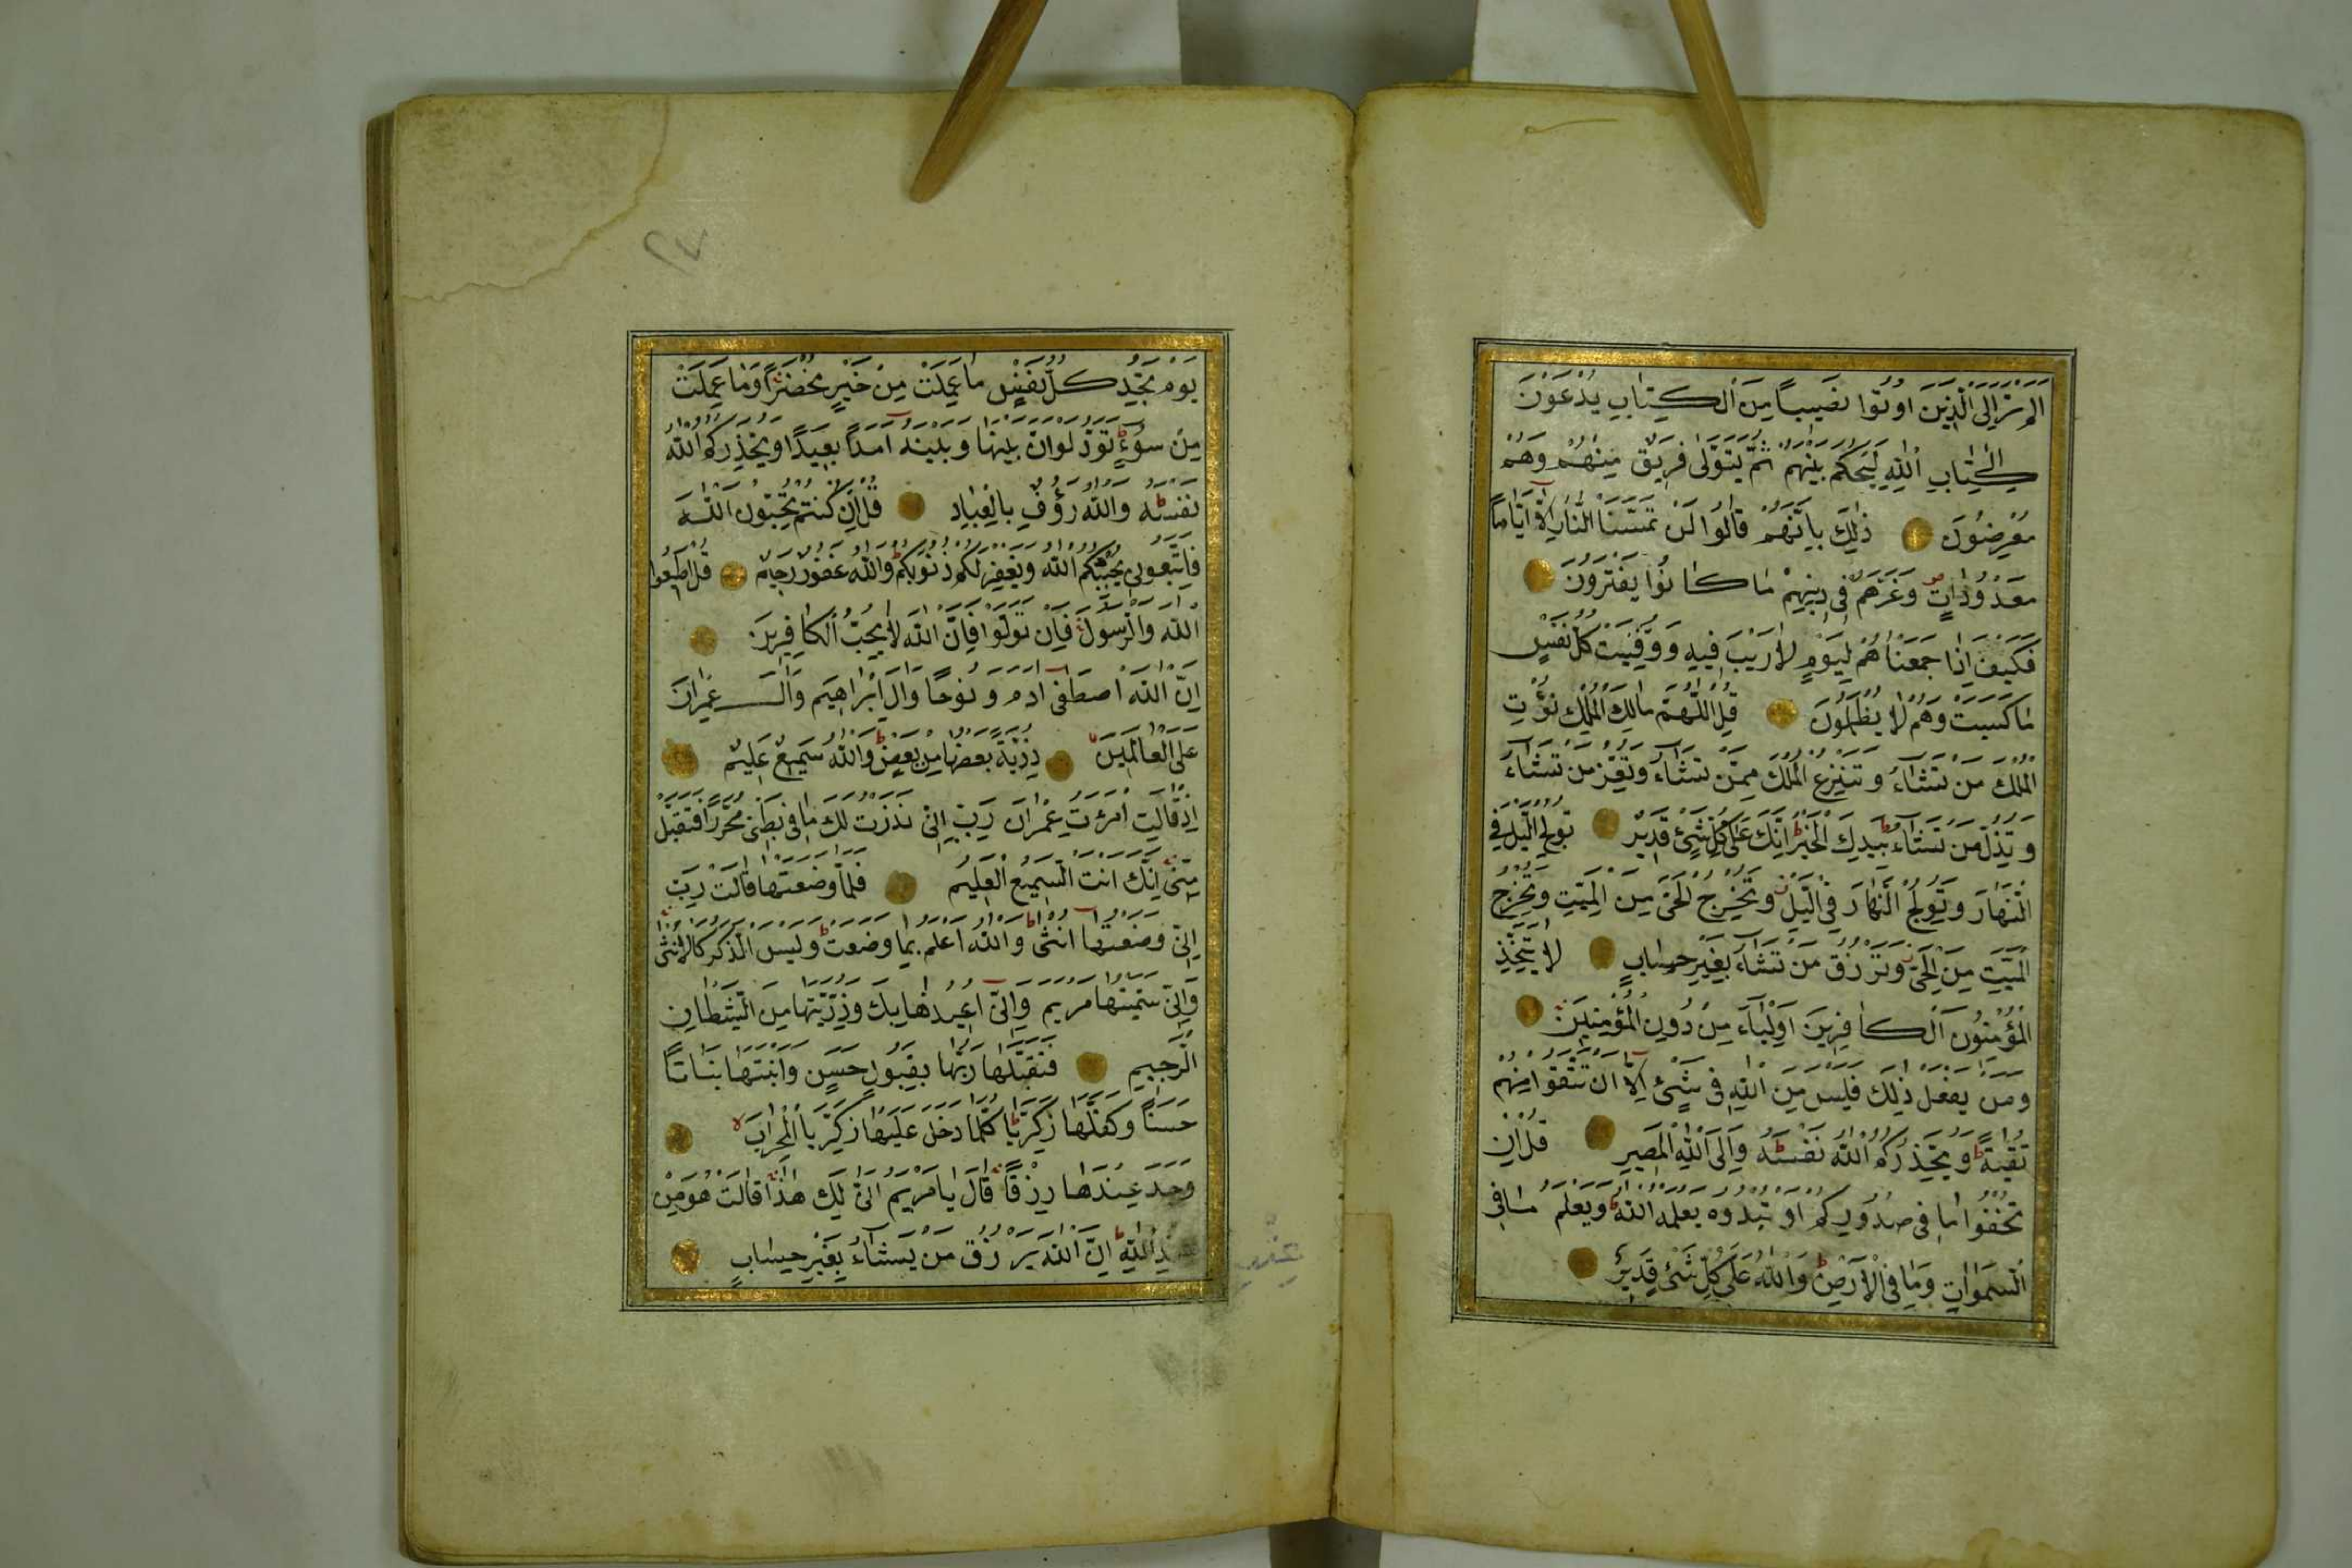 اَلَمْ تَرَ اِلَى الَّذِينَ اُوتُوا نَصِيباً مِنَ الْكِتَابِ يُدْعَوْنَ
اِلَى كِتَابِ اللّٰهِ لِيَحْكُمَ بَيْنَهُمْ ثُمَّ يَتَوَلّٰى فَرِيقٌ مِنْهُمْ وَهُمْ
مُعْرِضُونَ ذٰلِكَ بِاَنَّهُمْ قَالُوا لَنْ تَمَسَّنَا النَّارُ اِلَّا اَيَّاماً
مَعْدُودَاتٍ وَغَرَّهُمْ فِى دِينِهِمْ مَا كَانُوا يَفْتَرُونَ
فَكَيْفَ اِذَا جَمَعْنَاهُمْ لِيَوْمٍ لَارَيْبَ فِيهِ وَوُفِّيَتْ كُلُّ نَفْسٍ
مَا كَسَبَتْ وَهُمْ لَا يُظْلَمُونَ قُلِ اللّٰهُمَّ مَالِكَ الْمُلْكِ تُؤْتِى
الْمُلْكَ مَنْ تَشَاءُ وَتَنْزِعُ الْمُلْكَ مِمَّنْ تَشَاءُ وَتُعِزُّ مَنْ تَشَاءُ
وَتُذِلُّ مَنْ تَشَاءُ بِيَدِكَ الْخَيْرُ اِنَّكَ عَلَى كُلِّ شَىْءٍ قَدِيرٌ تُولِجُ الَّيْلَ فِى
النَّهَارِ وَتُولِجُ النَّهَارَ فِى الَّيْلِ وَتُخْرِجُ الْحَىَّ مِنَ الْمَيِّتِ وَتُخْرِجُ
الْمَيِّتَ مِنَ الْحَىِّ وَتَرْزُقُ مَنْ تَشَاءُ بِغَيْرِ حِسَابٍ لَا يَتَّخِذِ
الْمُؤْمِنُونَ الْكَافِرِينَ اَوْلِيَاءَ مِنْ دُونِ الْمُؤْمِنِينَ
وَمَنْ يَفْعَلْ ذٰلِكَ فَلَيْسَ مِنَ اللّٰهِ فِى شَىْءٍ اِلَّا اَنْ تَتَّقُوا مِنْهُمْ
تُقٰيةً وَيُحَذِّرُكُمُ اللّٰهُ نَفْسَهُ وَاِلَى اللّٰهِ الْمَصِيرُ قُلْ اِنْ
تُخْفُوا مَا فِى صُدُورِكُمْ اَوْ تُبْدُوهُ يَعْلَمْهُ اللّٰهُ وَيَعْلَمُ مَا فِى
السَّمٰوَاتِ وَمَا فِى الْاَرْضِ وَاللّٰهُ عَلَى كُلِّ شَىْءٍ قَدِيرٌ
٢٤
يَوْمَ تَجِدُ كُلُّ نَفْسٍ مَا عَمِلَتْ مِنْ خَيْرٍ مُحْضَراً وَمَا عَمِلَتْ
مِنْ سُوءٍ تَوَدُّ لَوْ اَنَّ بَيْنَهَا وَبَيْنَهُ اَمَداً بَعِيداً وَيُحَذِّرُكُمُ اللّٰهُ
نَفْسَهُ وَاللّٰهُ رَؤُفٌ بِالْعِبَادِ قُلْ اِنْ كُنْتُمْ تُحِبُّونَ اللّٰهَ
فَاتَّبِعُونِى يُحْبِبْكُمُ اللّٰهُ وَيَغْفِرْ لَكُمْ ذُنُوبَكُمْ وَاللّٰهُ غَفُورٌ رَحِيمٌ قُلْ اَطِيعُوا
اللّٰهَ وَالرَّسُولَ فَاِنْ تَوَلَّوْا فَاِنَّ اللّٰهَ لَا يُحِبُّ الْكَافِرِينَ
اِنَّ اللّٰهَ اصْطَفٰى اٰدَمَ وَنُوحاً وَاٰلَ اِبْرَاهِيمَ وَاٰلَ عِمْرَانَ
عَلَى الْعَالَمِينَ ذُرِّيَّةً بَعْضُهَا مِنْ بَعْضٍ وَاللّٰهُ سَمِيعٌ عَلِيمٌ
اِذْ قَالَتِ امْرَئَتُ عِمْرَانَ رَبِّ اِنِّى نَذَرْتُ لَكَ مَا فِى بَطْنِى مُحَرَّراً فَتَقَبَّلْ
مِنِّى اِنَّكَ اَنْتَ السَّمِيعُ الْعَلِيمُ فَلَمَّا وَضَعَتْهَا قَالَتْ رَبِّ
اِنِّى وَضَعْتُهَا اُنْثٰى وَاللّٰهُ اَعْلَمُ بِمَا وَضَعَتْ وَلَيْسَ الذَّكَرُ كَالْاُنْثٰى
وَاِنِّى سَمَّيْتُهَا مَرْيَمَ وَاِنِّى اُعِيذُهَا بِكَ وَذُرِّيَّتَهَا مِنَ الشَّيْطَانِ
الرَّجِيمِ فَتَقَبَّلَهَا رَبُّهَا بِقَبُولٍ حَسَنٍ وَاَنْبَتَهَا نَبَاتاً
حَسَناً وَكَفَّلَهَا زَكَرِيَّا كُلَّمَا دَخَلَ عَلَيْهَا زَكَرِيَّا الْمِحْرَابَ
وَجَدَ عِنْدَهَا رِزْقاً قَالَ يَا مَرْيَمُ اَنّٰى لَكِ هٰذَا قَالَتْ هُوَ مِنْ
عِنْدِ اللّٰهِ اِنَّ اللّٰهَ يَرْزُقُ مَنْ يَشَاءُ بِغَيْرِ حِسَابٍ